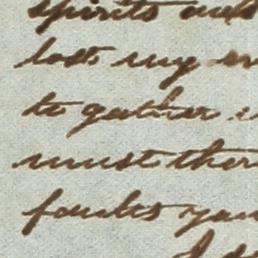 spirits and
lost my
to gather
must ther
faults you